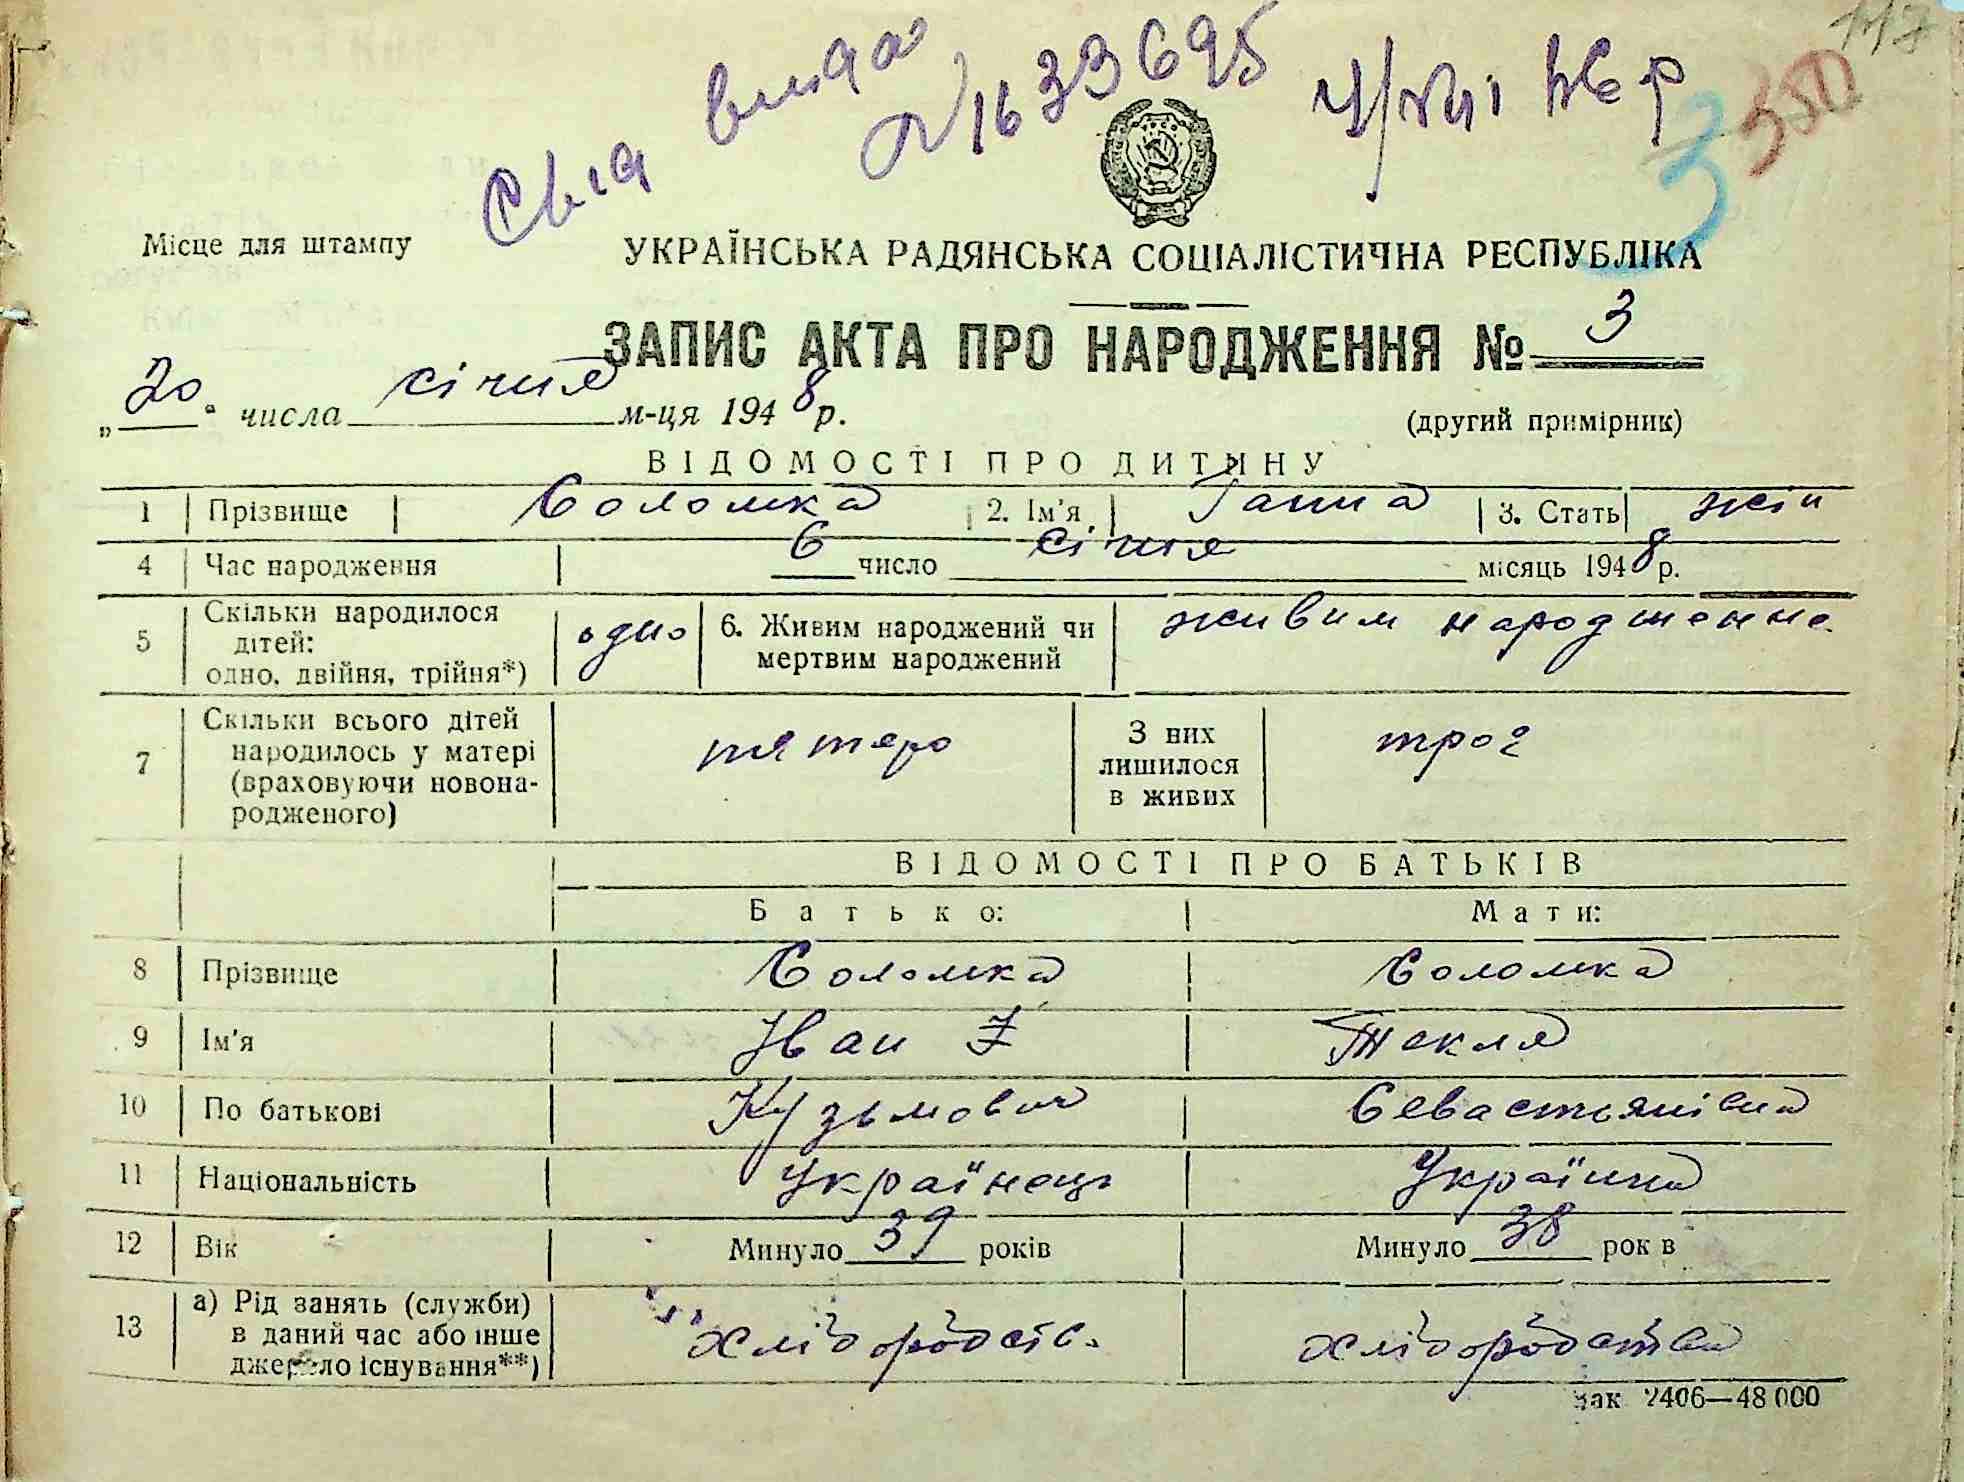 117
350
№ 1633695
Місце для штампу
УКРАЇНСЬКА РАДЯНСЬКА СОЦІАЛІСТИЧНА РЕСПУБЛІКА
3
ЗАПИС АКТА ПРО НАРОДЖЕННЯ № 3
„20“ числа січня м-ця 1948 р.
(другий примірник)
ВІДОМОСТІ ПРО ДИТИНУ
1 Прізвище Соломка 2. Ім'я Ганна 3. Стать жін
4 Час народження 6 число січня місяць 1948 р.
5 Скільки народилося дітей: одно, двійня, трійня*) одно 6. Живим народжений чи мертвим народжений живим народженна
7 Скільки всього дітей народилось у матері (враховуючи новонародженого) пятеро З них лишилося в живих троє
ВІДОМОСТІ ПРО БАТЬКІВ
Батько: Мати:
8 Прізвище Соломка Соломка
9 Ім'я Іван Текля
10 По батькові Кузьмович Севастьянівна
11 Національність Українець Українка
12 Вік Минуло 39 років Минуло 38 рок в
13 а) Рід занять (служби) в даний час або інше джерело існування**) хліборобств. хліборобства
Зак 2406—48 000